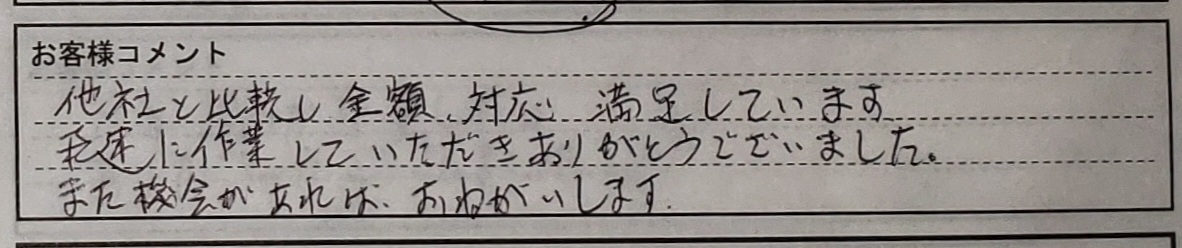 お客様コメント
他社と比較し金額、対応 満足しています
迅速に作業していただきありがとうございました。
また機会があれば、おねがいします.